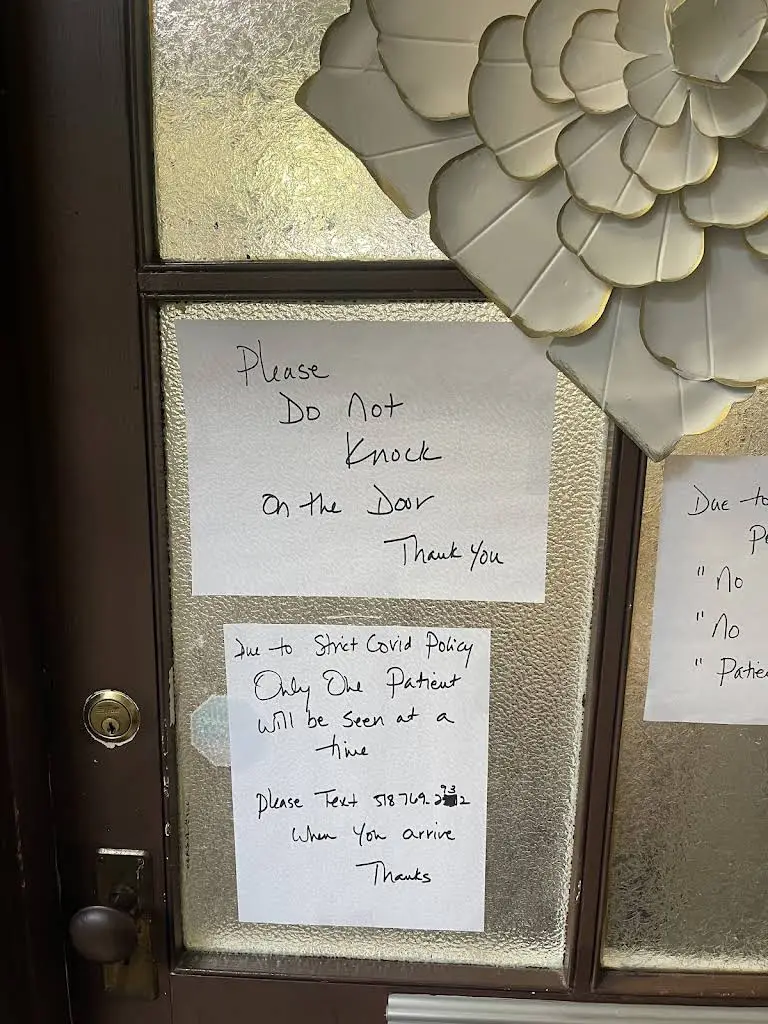 Please
Do Not
Knock
on the Door
Thank You
Due to Strict Covid Policy
Only One Patient
will be seen at a
time
Please Text 518 769-2932
When You arrive
Thanks
Due to
" No
" No
" Patie